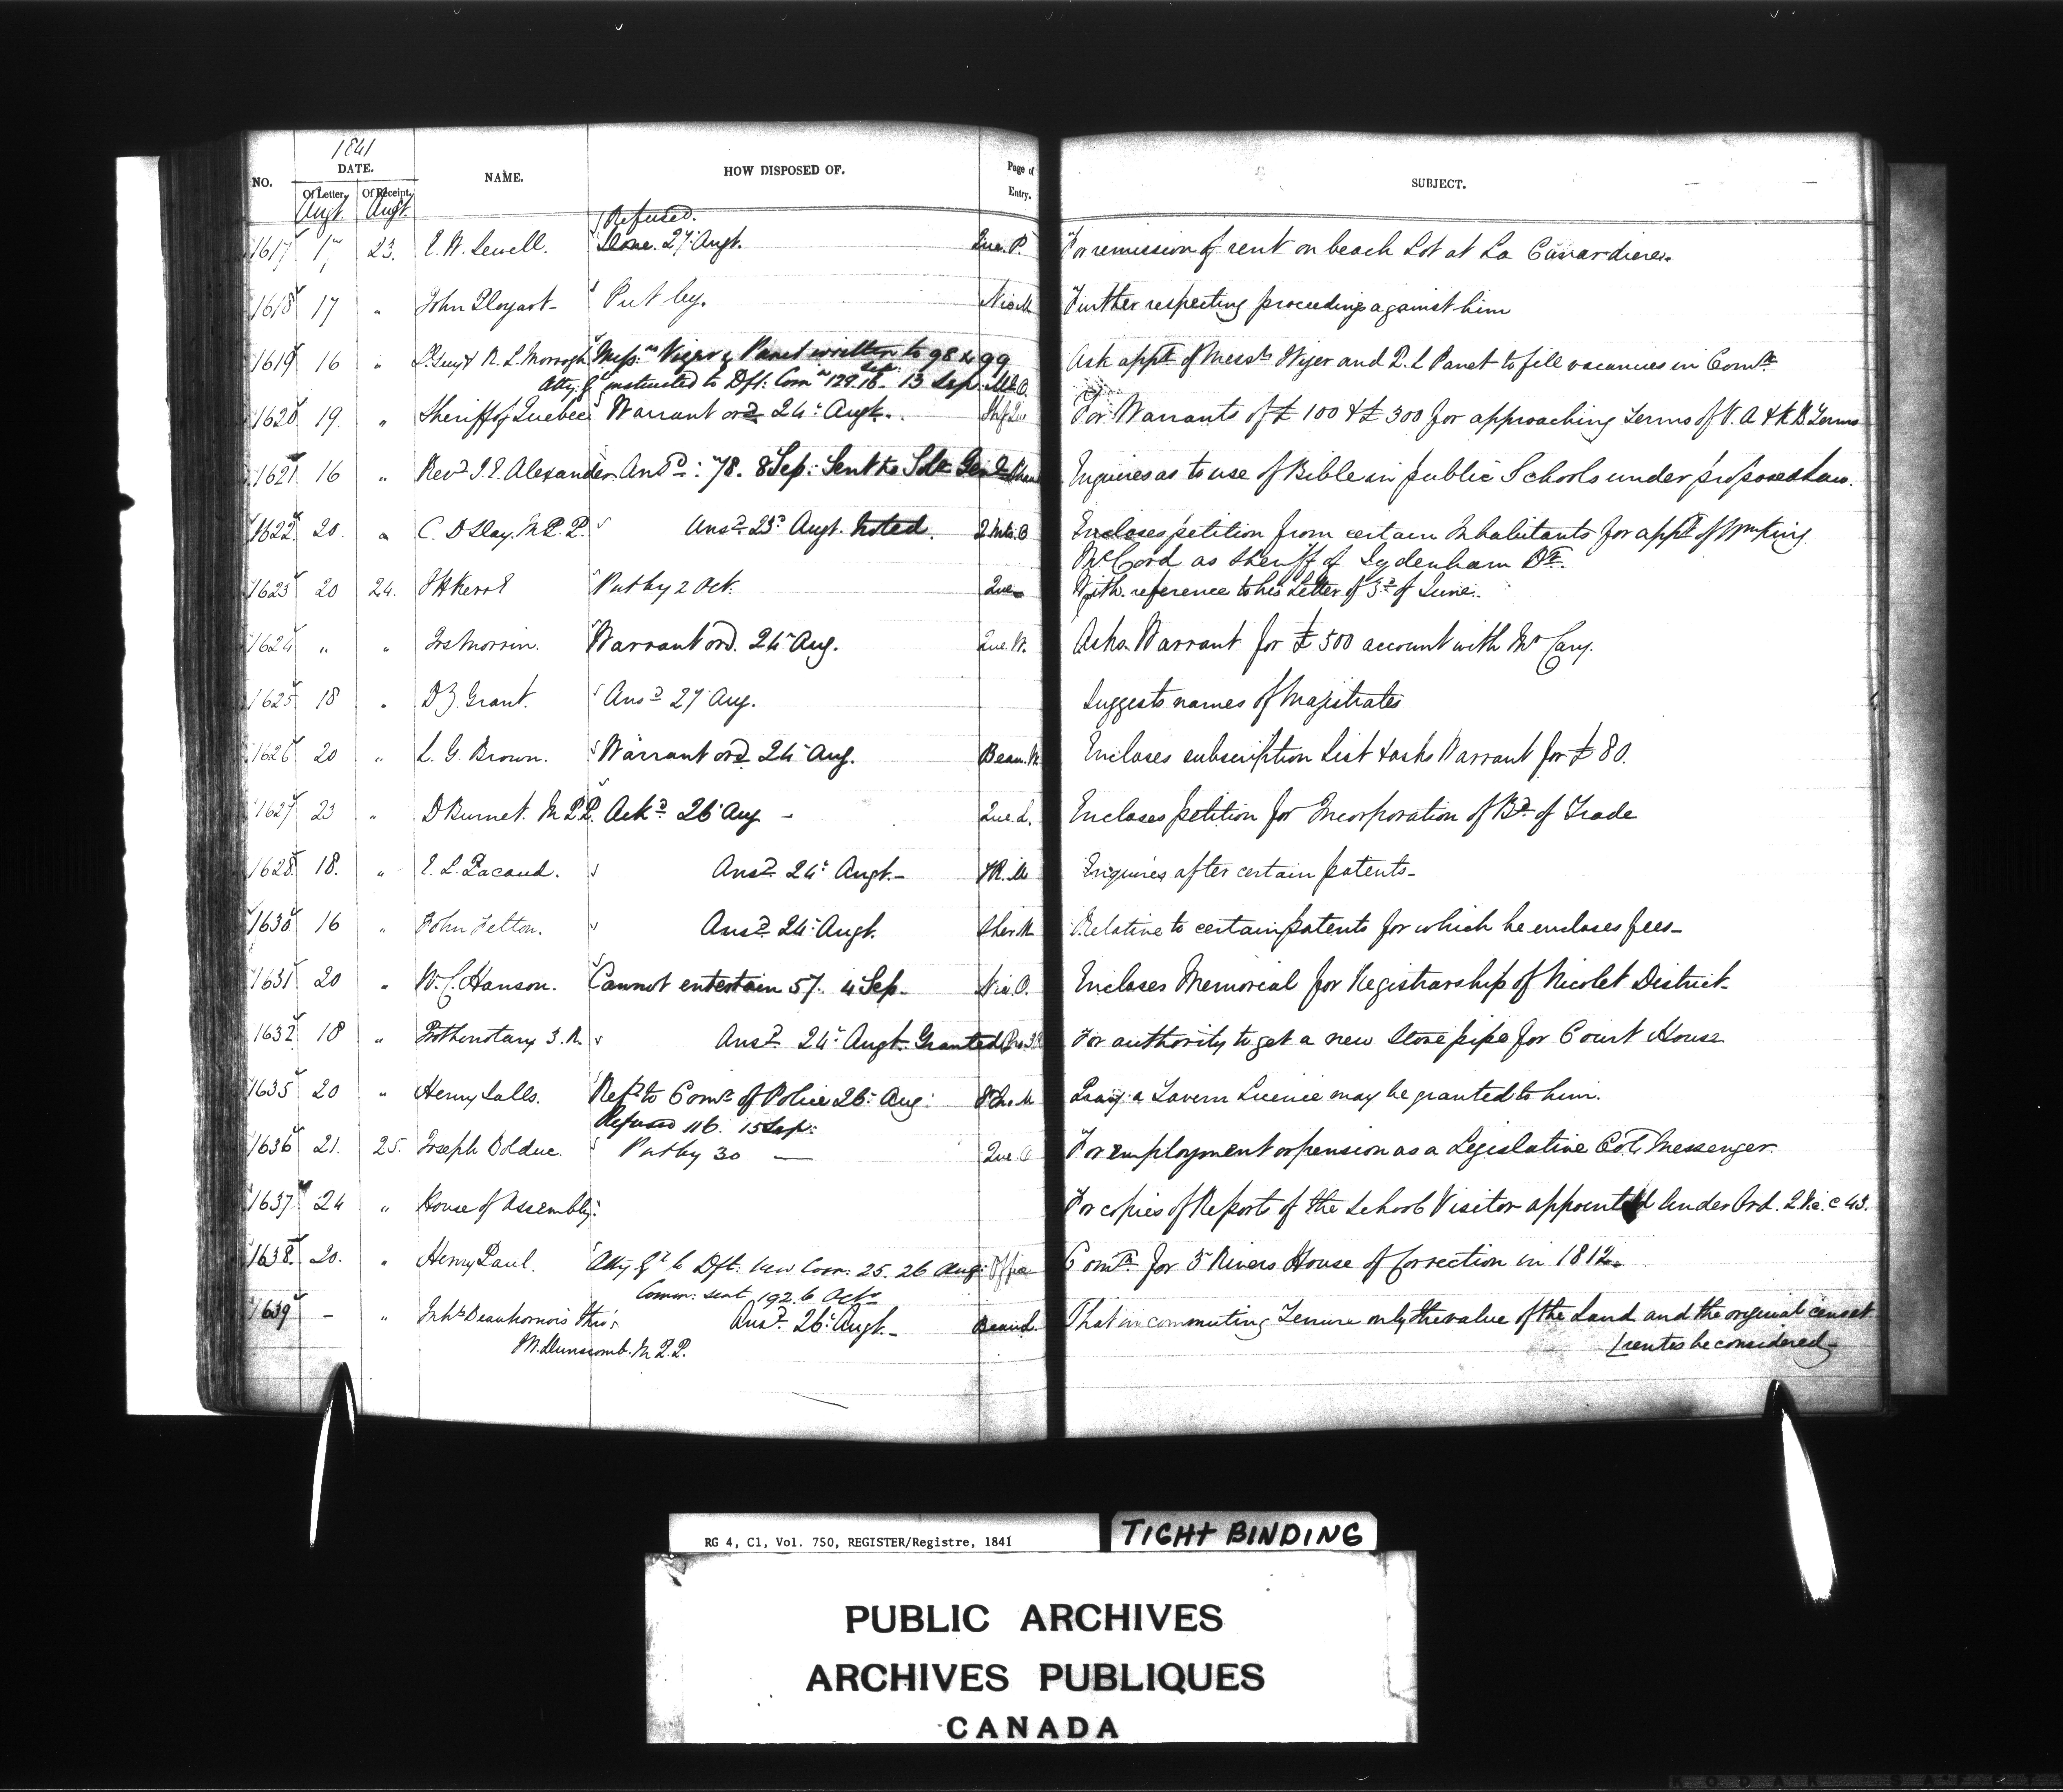 1841
NO. DATE. NAME. HOW DISPOSED OF. Page of Entry. SUBJECT.
Of Letter, Of Receipt,
Augt. Augt.
Refused.
1617 1st 23. E. W. Sewell. Done. 27 Augt. Que. P. For remission of rent on beach Lot at La Canardiere.
1618 17 " John Ployart Put by. Nic. M Further respecting proceedings against him
1619 16 " L. Guy & R. L. Morrogh Messrs Viger & Panet written to 98 & 99 Ask appt of Messrs Viger and P. L Panet to fill vacancies in Comn
Atty. Gl instructed to Dft: Comn 129. 16 - 13 Sep. M. O.
1620 19. " Sheriff of Quebec Warrant ord 24 Augt. Shf Que For Warrants of £ 100 & £ 300 for approaching Terms of V. A & K. B. Terms
1621 16 " Revd J. E. Alexander. Ansd: 78. 8 Sep: Sent to Solr Genl Enquires as to use of Bible in public Schools under proposed Law.
1622 20. " C. D Day. M. P. P. Ansd 23d Augt. Noted. Encloses petition from certain Inhabitants for appt of Wm King
McCord as Sheriff of Sydenham Dt.
1623 20 24. Put by 2 Oct. Que With reference to his Letter of 3d of June.
1624 " " Jos Morrin. Warrant ord. 24 Aug. Que. W. Asks Warrant for £ 500 account with Mr Cary.
1625 18 " D Z. Grant. Ansd 27 Aug. Suggests names of Magistrates
1626 20 " L. G. Brown. Warrant ord 24 Aug. Beau. W. Encloses subscription List & asks Warrant for £ 80.
1627 23 " D Burnet. M P. P. Ackd 26 Aug - Que. L. Encloses petition for Incorporation of Bd of Trade
1628 18. " E. L. Pacaud. Ansd 24 Augt. - 3 R. M Enquires after certain patents -
1630 16 " John Felton. Ansd 24 Augt. Sher. M Relative to certain patents for which he encloses fees -
1631 20 " W. C. Hanson. Cannot entertain 57. 4 Sep. Nic. O. Encloses Memorial for Registrarship of Nicolet District -
1632 18 " Prothonotary 3. R. Ansd 24 Augt. Granted Pro 3 R For authority to get a new Stove pipe for Court House
1635 20 " Henry Salls. Refd to Comr of Police 26 Aug: M Pray a Tavern Licence may be granted to him.
Refused 116. 15 Sep:
1636 21. 25. Joseph Bolduc. Put by 30 — Que. O For employment or pension as a Legislative Col Messenger.
1637 24 " House of Assembly. For copies of Reports of the School Visitor appointed under Ord. 2 Vic. c 43.
1638. 20. " Henry Paul. Atty Gl to Dft: new Comn: 25. 26 Aug: Office Comn for 3 Rivers House of Correction in 1812.
Comn: sent 192. 6 Octr
1639 - " Inhts Beauharnois thro' Ansd 26 Augt. - Beau. L. That in commuting Tenure only the value of the Land and the original cens et
M. Dunscomb. M P. P. [rentes be considered
RG 4, C1, Vol. 750, REGISTER/Registre, 1841
TIGHT BINDING
PUBLIC ARCHIVES
ARCHIVES PUBLIQUES
CANADA